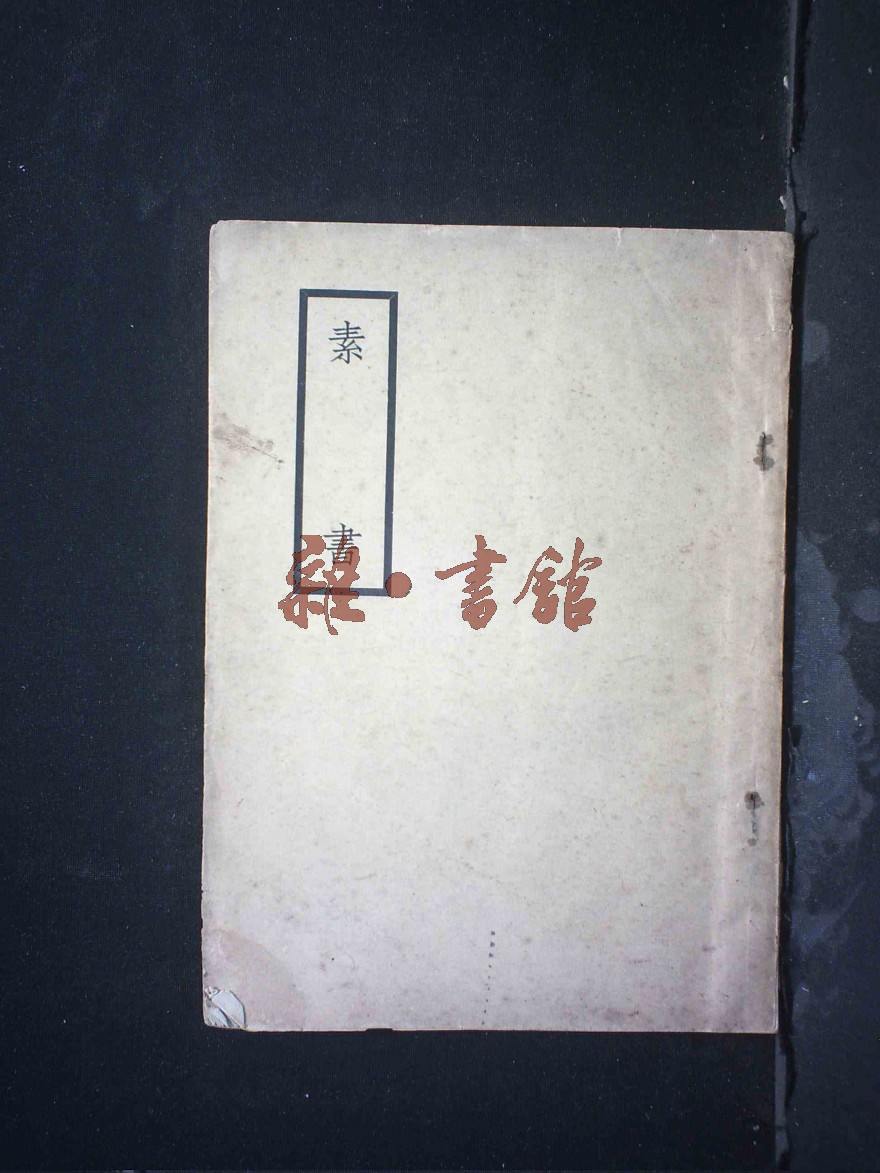 素書
雜·書館